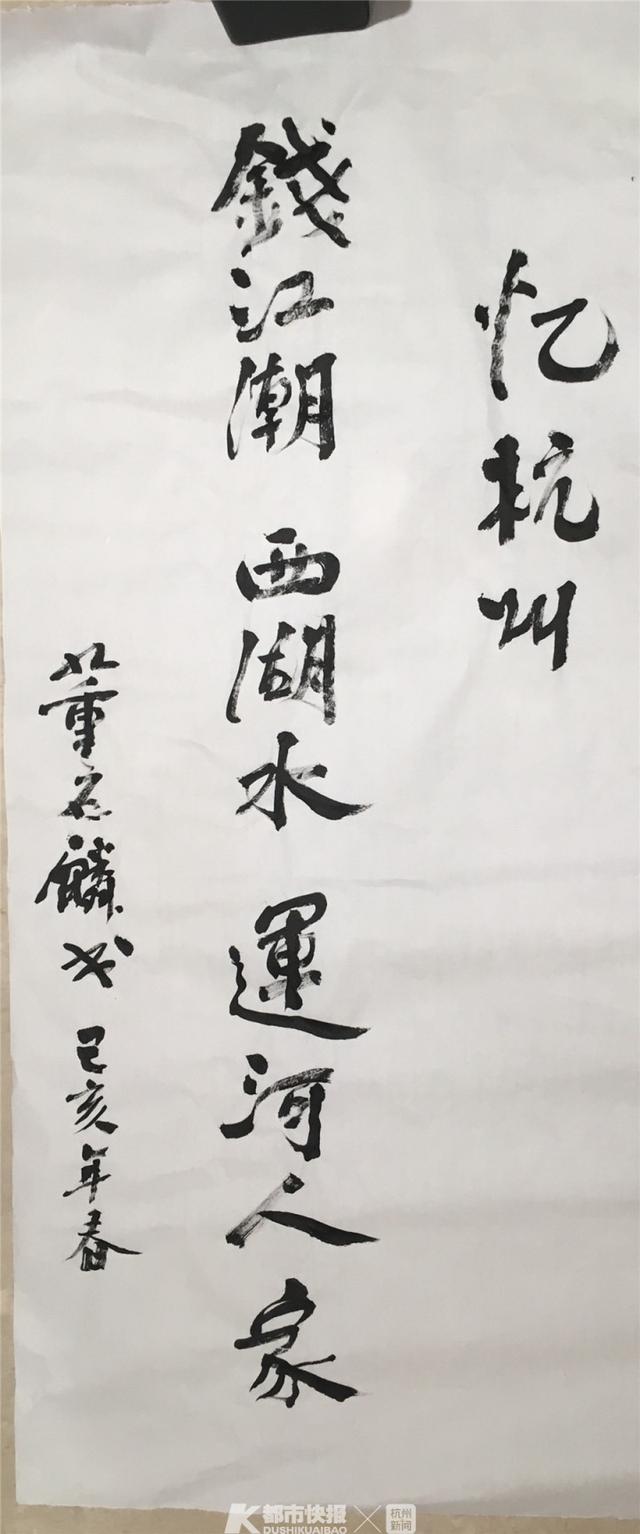 忆杭州
錢江潮 西湖水 運河人家
董 麟书 己亥年春
都市快报
DUSHIKUAIBAO
杭州
新闻